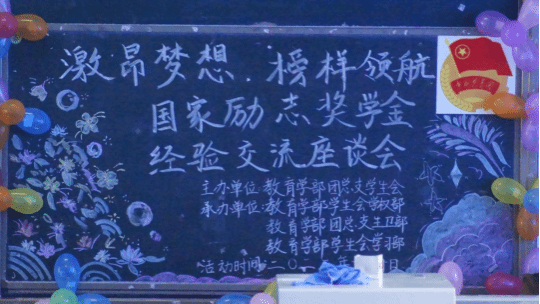 激昂梦想.榜样领航
国家励志奖学金
经验交流座谈会
主办单位:教育学部团总支学生会
承办单位:教育学部学生会学权部
教育学部团总支生卫部
教育学部学生会学习部
活动时间:二〇一